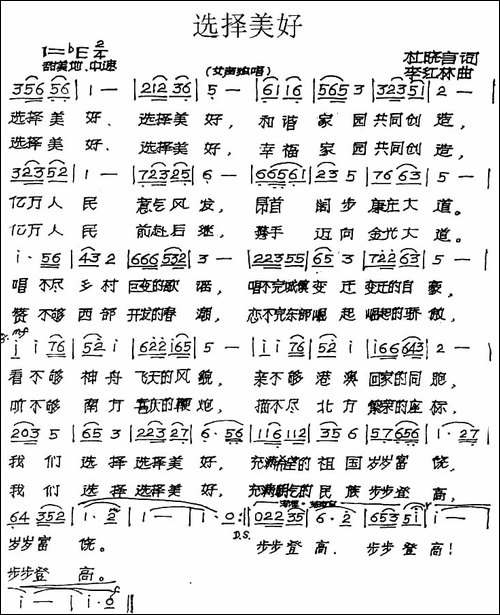 选择美好
1=♭E 2/4
甜美地、中速
(女声独唱)
杜晓言词
李红林曲
356 56 | 1 — | 212 36 | 5 — | 6116 | 5653 | 32351 | 2 — |
选择美 好、 选择美 好， 和谐 家园共同创 造，
选择美 好、 选择美 好， 幸福 家园共同创 造，
32352 | 1 — | 72325 | 6 — | 66561 | 23 5 | 76 63 | 5 — |
亿万人 民 意气风 发， 昂首 阔步 康庄大 道。
亿万人 民 前赴后 继， 携手 迈向 金光大 道。
唱不尽 乡村 巨变的歌 谣， 唱不完城镇变 迁 变迁的自 豪，
赞不够 西部 开发的春 潮， 恋不完东部崛 起 崛起的骄 傲，
mf
看不够 神舟 飞天的风 貌， 亲不够 港澳 回家的同 胞，
听不够 南方 喜庆的鞭 炮， 描不尽 北方 繁荣的座 标，
203 5 | 65 3 | 223 27 | 6·56 | 116112 | 35 6 | 57656 | 1·27 |
我 们 选择 选择美 好， 充满希望的 祖国 岁岁富 饶，
我 们 选择 选择美 好， 充满朝气的 民族 步步登 高，
D.S.
岁岁富 饶。 步步登 高， 步步登 高！
步步登 高。